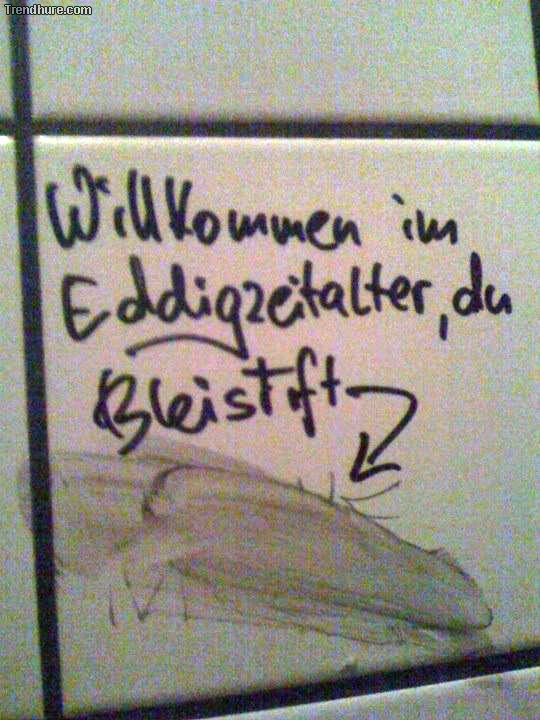 Trendhure.com
Willkommen im
Eddigzeitalter, du
Bleistift